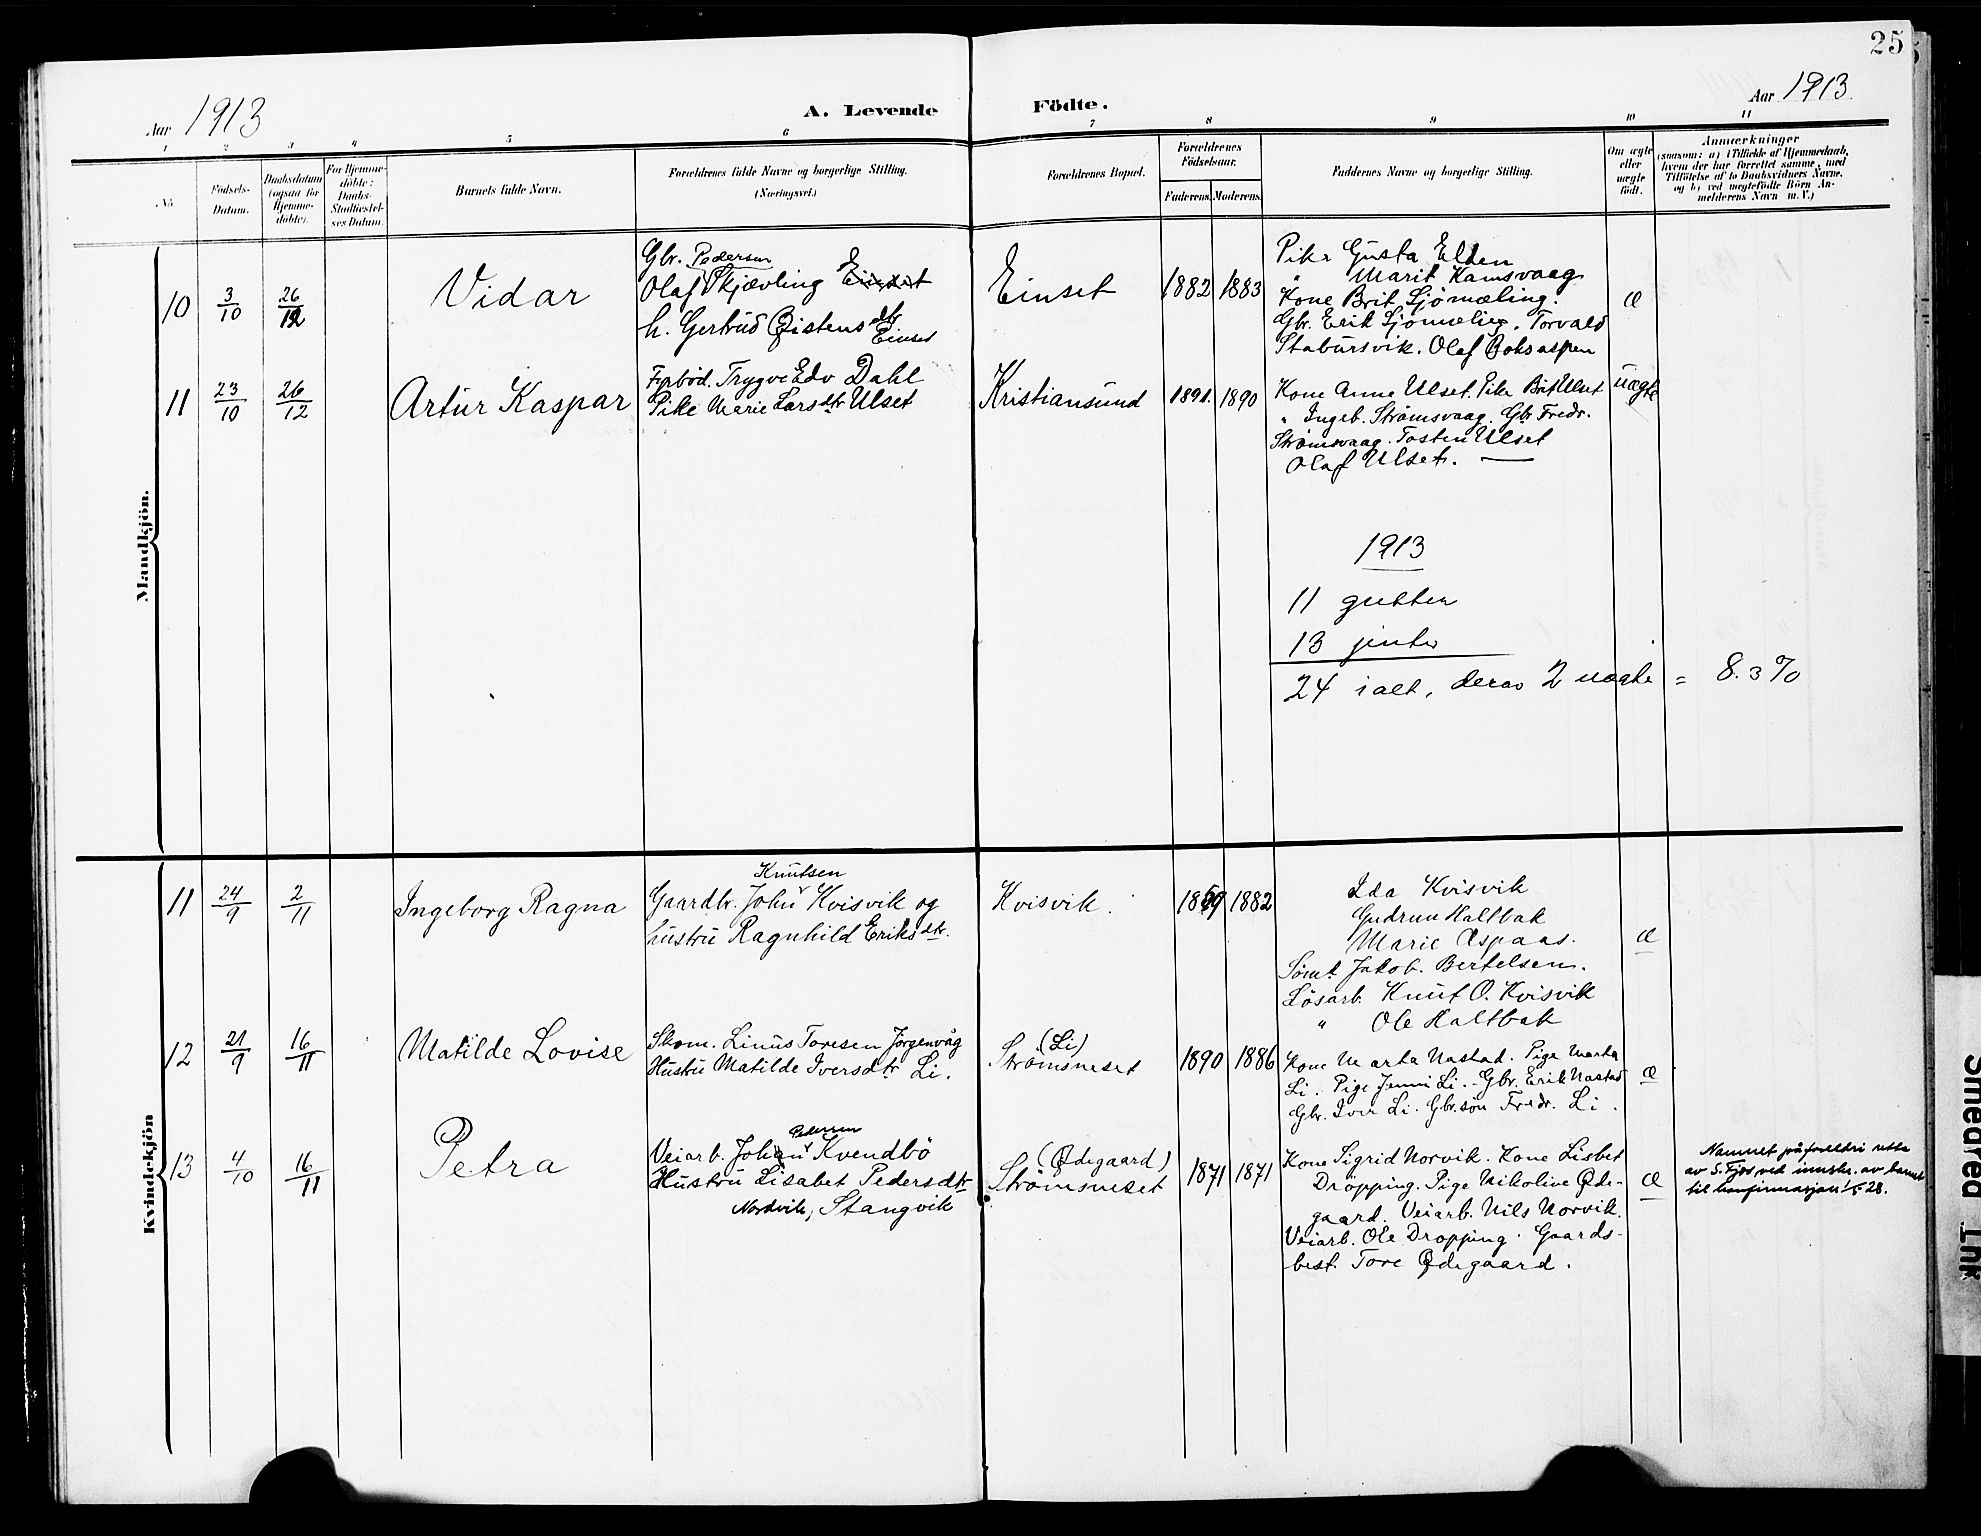 25
Aar 1913
A. Levende Födte.
Aar 1913
1 2 3 4 5 6 7 8 9 10 11
No.
Födsels-
Datum.
Daabsdatum
(ogsaa for
Hjemme-
döbte).
For Hjemme-
döbte:
Daabs-
Stadfæstel-
ses Datum.
Barnets fulde Navn.
Forældrenes fulde Navne og borgerlige Stilling.
(Næringsvei.)
Forældrenes Bopæl.
Forældrenes
Födselsaar.
Faderens. Moderens.
Faddernes Navne og borgerlige Stilling.
Om ægte
eller
uægte
födt.
Anmærkninger
(saasom: a) i Tilfælde af Hjemmedaab,
hvem der har forrettet samme, med
Tilföielse af to Daabsvidners Navne.
og b) ved uægtefödte Börn An-
melderens Navn m. V.)
Mandkjön.
10 3/10 26/12 Vidar
Gbr. Pedersen
Olaf Skjævling Einset
h. Gertrud Øistensdtr
Einset
Einset 1882 1883
Pike Gusta Elden
" Marit Kamsvaag
Kone Brit Sjømæling.
Gbr. Erik Sjømæling. Torvald
Stabursvik. Olaf Boksaspen
æ
11 23/10 26/12 Artur Kaspar
Fyrbød. Trygve Edv Dahl
Pike Marie Larsdtr Ulset
Kristiansund 1891. 1890
Kone Anne Ulset. Pike Brit Ulset
" Ingeb. Strømsvaag. Gbr Fredr.
Strømsvaag. Tosten Ulset
Olaf Ulset.
uægte
1913
11 gutter
13 jenter
24 ialt, derav 2 uægte = 8.3%
Kvindekjön
11 24/9 2/11 Ingeborg Ragna
Knutsen
Gaardbr. John Kvisvik og
hustru Ragnhild Eriksdtr.
Kvisvik. 1869 1882
Ida Kvisvik
Gudrun Haltbak
Marie Aspaas.
Sømt. Jakob. Bertelsen.
Løsarb. Knut O. Kvisvik
" Ole Haltbak
æ
12 21/9 16/11 Matilde Lovise
Skom. Linus Toresen Jörgenvåg
Hustru Matilde Iversdtr Li.
(Li)
Strømsneset 1890 1886
Kone Marta Nastad. Pige Marta
Li. Pige Jenni Li. Gbr. Erik Nastad
Gbr. Iver Li. Gbr.søn Fredr. Li.
æ
13 4/10 16/11 Petra
Pedersen
Veiarb. Johan Kvendbö
Hustru Lisabet Pedersdtr
Nordvik, Stangvik
(Ødegaard)
Strømsneset 1871 1871
Kone Sigrid Norvik. Kone Lisbet
Dröpping. Pige Nikoline Øde-
gaard. Veiarb. Nils Norvik.
Veiarb. Ole Dropping. Gaards-
best. Tore Ødegaard.
æ
Namnet på foreldri retta
av S. Fjøs ved innskr. av barnet
til konfirmasjon 28.
Smeared Ink